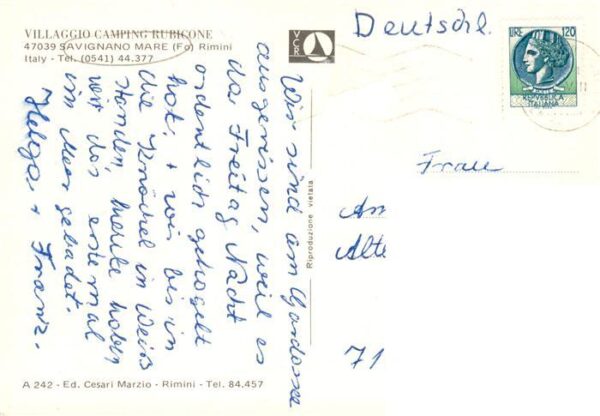 VILLAGGIO CAMPING RUBICONE
47039 SAVIGNANO MARE (Fo) Rimini
Italy - Tel. (0541) 44.377
VCR
Deutschl.
LIRE 120
REPVBBLICA
ITALIANA
Wir sind am Gardasee
ausgerissen, weil es
da Freitag Nacht
ordentlich gehagelt
hat, + wir bis in
die Knöchel in Weiß
standen, heute haben
wir das erstemal
im Meer gebadet.
Helga + Franz.
Riproduzione vietata
Frau
An
Alte
71
A 242 - Ed. Cesari Marzio - Rimini - Tel. 84.457